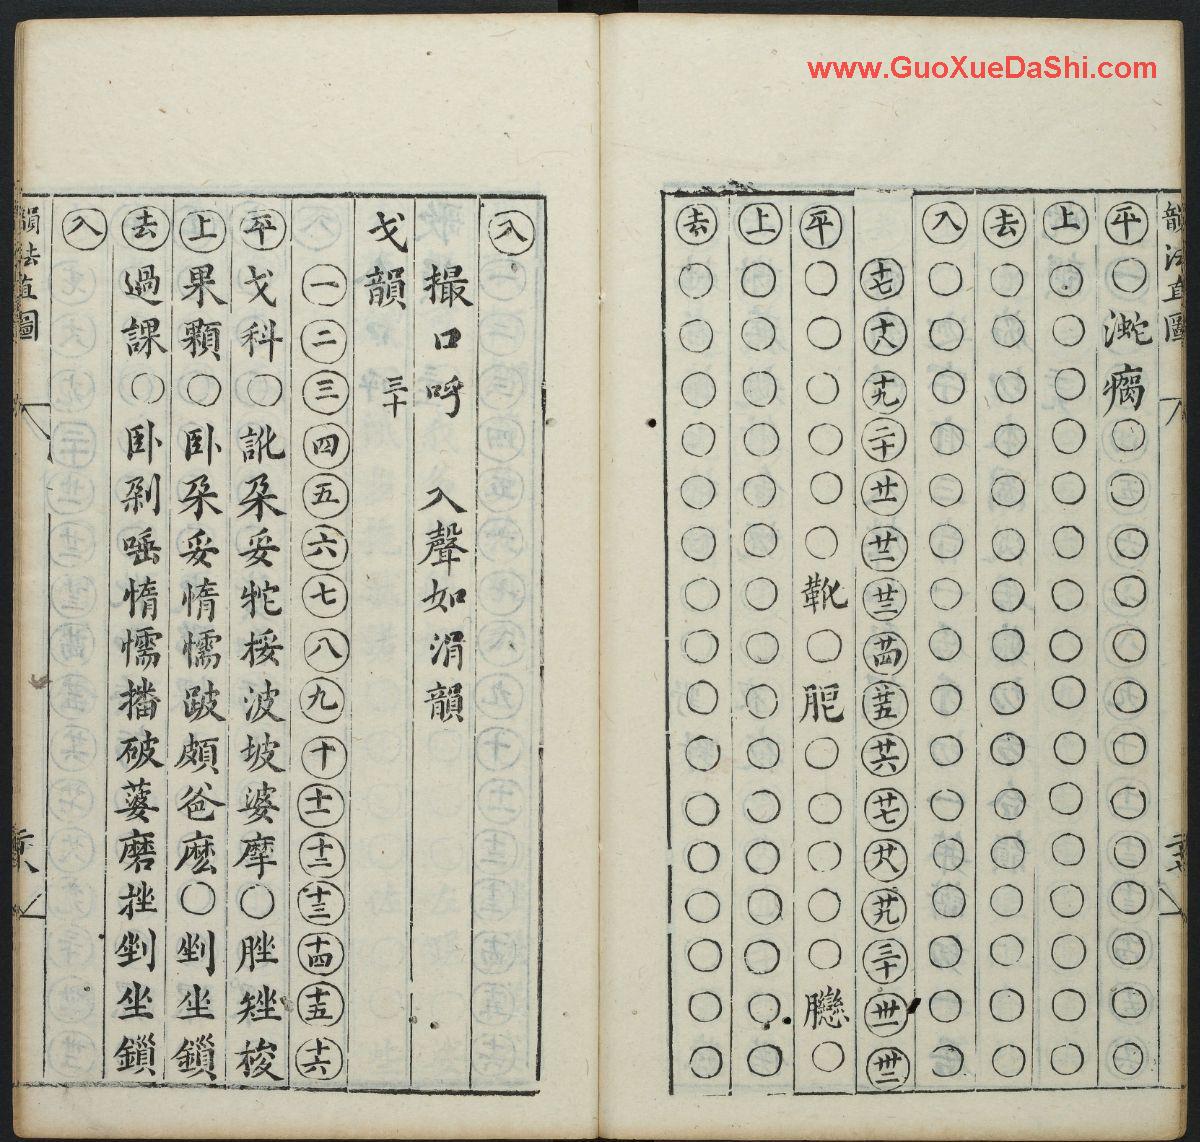 www.GuoXueDaShi.com
韻法直圖
平〇𤄷瘸〇〇〇〇〇〇〇〇〇〇〇〇〇
上〇〇〇〇〇〇〇〇〇〇〇〇〇〇〇〇
去〇〇〇〇〇〇〇〇〇〇〇〇〇〇〇〇
入〇〇〇〇〇〇〇〇〇〇〇〇〇〇〇〇
十七十八十九二十廿一廿二廿三廿四廿五廿六廿七廿八廿九三十卅一卅二
平〇〇〇〇〇〇靴〇肥〇〇〇〇〇戀〇
上〇〇〇〇〇〇〇〇〇〇〇〇〇〇〇〇
去〇〇〇〇〇〇〇〇〇〇〇〇〇〇〇〇
入
撮口呼 入聲如涓韻
戈韻 三十
一二三四五六七八九十十一十二十三十四十五十六
平戈科〇訛朶妥牠捼波坡婆摩〇脞矬梭
上果顆〇卧朶妥惰懦跛頗爸麽〇剉坐鎖
去過課〇卧剁唾惰懦播破蔢磨挫剉坐鎖
入
韻法直圖